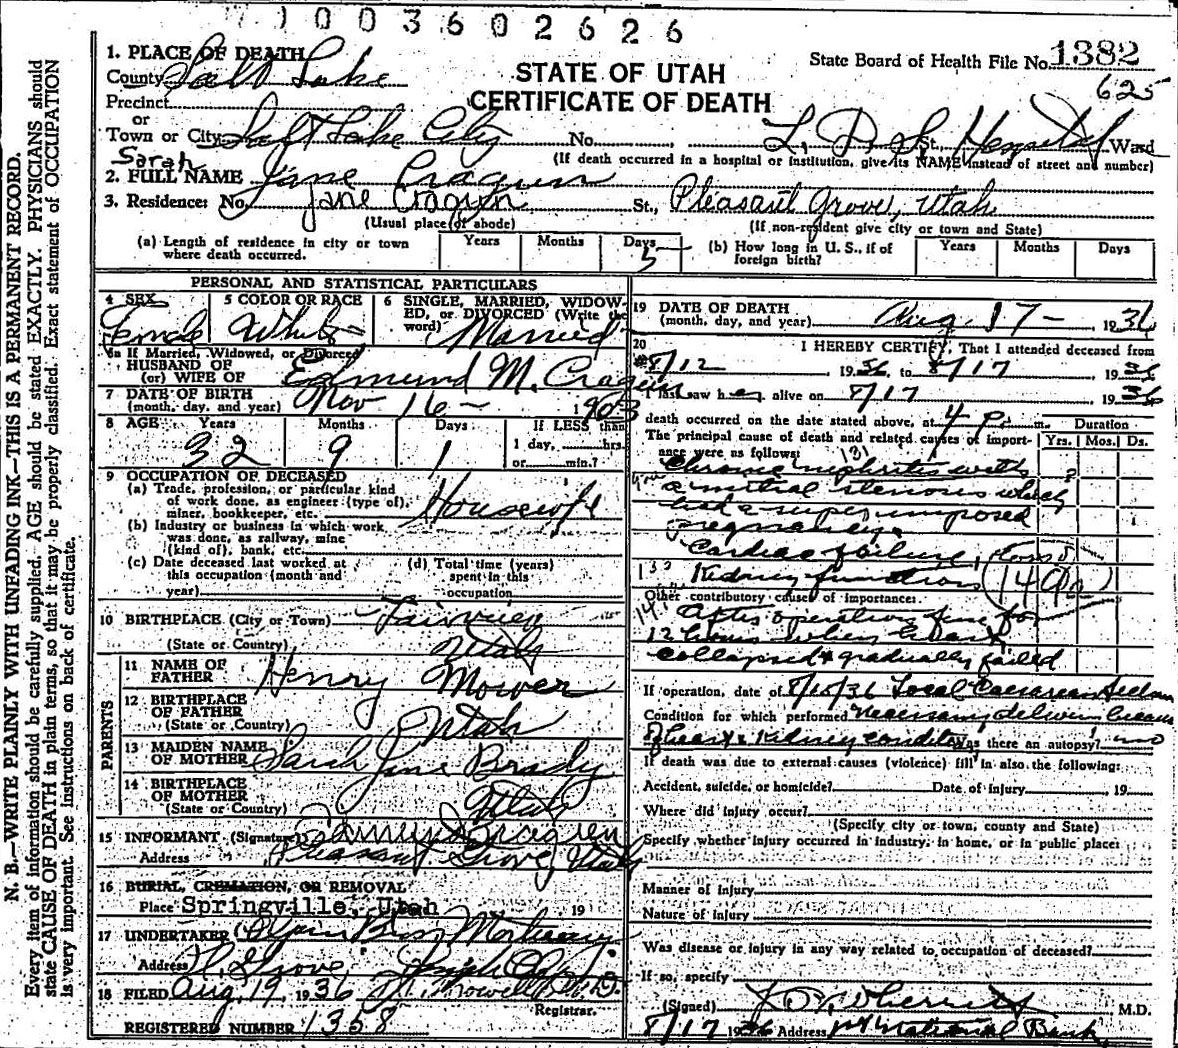 1003602626
1. PLACE OF DEATH
County Salt Lake
STATE OF UTAH
CERTIFICATE OF DEATH
State Board of Health File No. 1382
625
Precinct
or
Town or City Salt Lake City No. L. D. S. St., Hospital Ward
(If death occurred in a hospital or institution, give its NAME instead of street and number)
Sarah
2. FULL NAME Jane Cragun
3. Residence: No. Jane Cragun St., Pleasant Grove, Utah
(Usual place of abode) (If non-resident give city or town and State)
(a) Length of residence in city or town where death occurred. Years Months Days 5
(b) How long in U. S., if of foreign birth? Years Months Days
PERSONAL AND STATISTICAL PARTICULARS
4 SEX Female
5 COLOR OR RACE White
6 SINGLE, MARRIED, WIDOWED, or DIVORCED (Write the word) Married
5a If Married, Widowed, or Divorced
HUSBAND OF
(or) WIFE OF Edmund M. Cragun
7 DATE OF BIRTH
(month, day, and year) Nov 16 - 1903
8 AGE Years 32 Months 9 Days 1 If LESS than 1 day, hrs. or min.?
9 OCCUPATION OF DECEASED
(a) Trade, profession, or particular kind of work done, as engineer (type of), miner, bookkeeper, etc. Housewife
(b) Industry or business in which work was done, as railway, mine (kind of), bank, etc.
(c) Date deceased last worked at this occupation (month and year)
(d) Total time (years) spent in this occupation
10 BIRTHPLACE (City or Town) Fairview
(State or Country) Utah
PARENTS
11 NAME OF FATHER Henry Mower
12 BIRTHPLACE OF FATHER
(State or Country) Utah
13 MAIDEN NAME OF MOTHER Sarah Jane Brady
14 BIRTHPLACE OF MOTHER
(State or Country) Utah
15 INFORMANT (Signature) Edmund Cragun
Address Pleasant Grove, Utah
16 BURIAL, CREMATION, OR REMOVAL
Place Springville, Utah 19
17 UNDERTAKER Bros Mortuary
Address Pl. Grove,
18 FILED Aug. 19, 1936 M.D.
Registrar.
REGISTERED NUMBER 1358
19 DATE OF DEATH
(month, day, and year) Aug. 17 - 1936
20 I HEREBY CERTIFY, That I attended deceased from
8/12 1936 to 8/17 1936
I last saw her alive on 8/17 1936
death occurred on the date stated above, at 4 P. m.
Duration
Yrs. Mos. Ds.
The principal cause of death and related causes of importance were as follows: 131
Chronic nephritis with ?
a mitral stenosis which
had a super imposed
pregnancy.
Cardiac failure,
Kidney function
Other contributory causes of importance:
After operation fine for
12 hours when heart
collapsed & gradually failed
If operation, date of 8/15/36 Local Caesarean Section
Condition for which performed Necessary delivery because
of heart & kidney condition Was there an autopsy? no
If death was due to external causes (violence) fill in also the following:
Accident, suicide, or homicide? Date of injury 19
Where did injury occur?
(Specify city or town, county and State)
Specify whether injury occurred in industry, in home, or in public place:
Manner of injury
Nature of injury
Was disease or injury in any way related to occupation of deceased?
If so, specify
(Signed) M.D.
8/17 1936 Address 1st National Bank
N. B.—WRITE PLAINLY WITH UNFADING INK—THIS IS A PERMANENT RECORD.
Every item of information should be carefully supplied. AGE should be stated EXACTLY. PHYSICIANS should
state CAUSE OF DEATH in plain terms, so that it may be properly classified. Exact statement of OCCUPATION
is very important. See instructions on back of certificate.